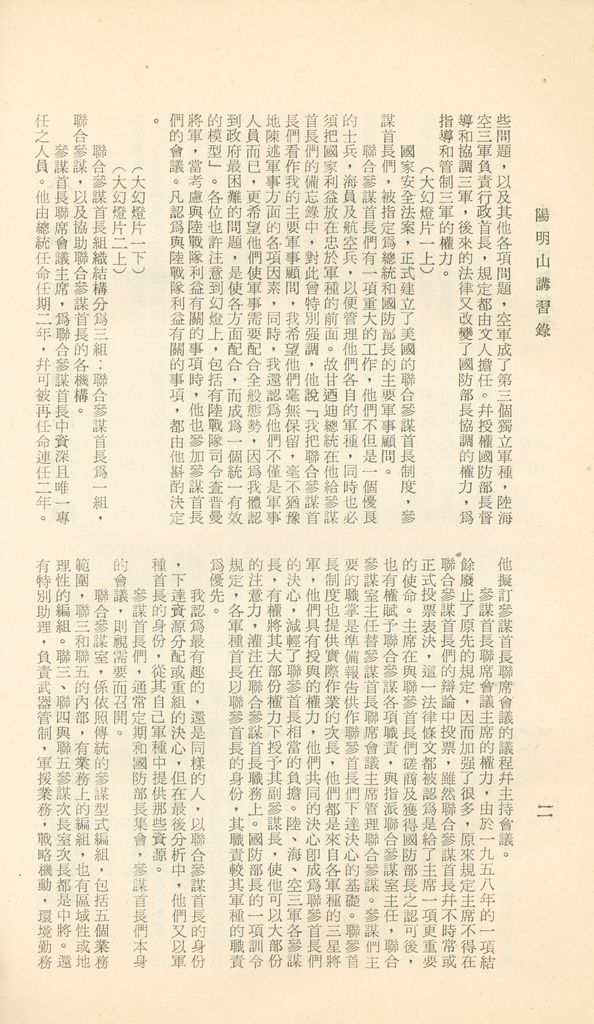 陽明山講習錄
二
些問題，以及其他各項問題，空軍成了第三個獨立軍種，陸海
空三軍負責行政首長，規定都由文人擔任。幷授權國防部長督
導和協調三軍，後來的法律又改變了國防部長協調的權力，爲
指導和管制三軍的權力。
（大幻燈片一上）
國家安全法案，正式建立了美國的聯合參謀首長制度，參
謀首長們，被指定爲總統和國防部長的主要軍事顧問。
聯合參謀首長們有一項重大的工作，他們不但是一個優良
的士兵，海員及航空兵，以便管理他們各自的軍種，同時也必
須把國家利益放在忠於軍種的前面。故甘迺迪總統在他給參謀
首長們的備忘錄中，對此曾特別强調，他說「我把聯合參謀首
長們看作我的主要軍事顧問，我希望他們毫無保留，毫不猶豫
地陳述軍事方面的各項因素，同時，我還認爲他們不僅是軍事
人員而已，更希望他們使軍事需要配合全般態勢，因爲我體認
到政府最困難的問題，是使各方面配合，而成爲一個統一有效
的模型」。各位也許注意到幻燈上，包括有陸戰隊司令普曼
將軍，當考慮與陸戰隊利益有關的事項時，他也參加參謀首長
們的會議。凡認爲與陸戰隊利益有關的事項，都由他斟酌決定
。
（大幻燈片一下）
（大幻燈片二上）
聯合參謀首長組織結構分爲三組：聯合參謀首長爲一組，
聯合參謀，以及協助聯合參謀首長的各機構。
參謀首長聯席會議主席，爲聯合參謀首長中資深且唯一專
任之人員。他由總統任命任期二年，幷可被再任命連任二年。
他擬訂參謀首長聯席會議的議程幷主持會議。
參謀首長聯席會議主席的權力，由於一九五八年的一項結
餘廢止了原先的規定，因而加强了很多，原來規定主席不得在
聯合參謀首長們的辯論中投票，雖然聯合參謀首長幷不時常或
正式投票表決，這一法律條文都被認爲是給了主席一項更重要
的使命。主席在與聯參首長們磋商及獲得國防部長之認可後，
也有權賦予聯合參謀各項職責，與指派聯合參謀室主任，聯合
參謀室主任替參謀首長聯席會議主席管理聯合參謀。參謀們主
要的職掌是準備報告供作聯參首長們下達決心的基礎。聯參首
長制度也提供實際作業的次長，他們都是來自各軍種的三星將
軍，他們具有授與的權力，他們共同的決心卽成爲聯參首長們
的決心，減輕了聯參首長相當的負擔。陸、海、空三軍各參謀
長，有權將其大部份權力下授予其副參謀長，使他可以大部份
的注意力，灌注在聯合參謀首長職務上。國防部長的一項訓令
規定，各軍種首長以聯參首長的身份，其職責較其軍種的職責
爲優先。
我認爲最有趣的，還是同樣的人，以聯合參謀首長的身份
，下達資源分配或重組的決心，但在最後分析中，他們又以軍
種首長的身份，從其自己軍種中提供那些資源。
參謀首長們，通常定期和國防部長集會，參謀首長們本身
的會議，則視需要而召開。
聯合參謀室，係依照傳統的參謀型式編組，包括五個業務
範圍，聯三和聯五的內部，有業務上的編組，也有區域性或地
理性的編組。聯三、聯四與聯五參謀次長室次長都是中將。還
有特別助理，負責武器管制，軍援業務，戰略機動，環境勤務